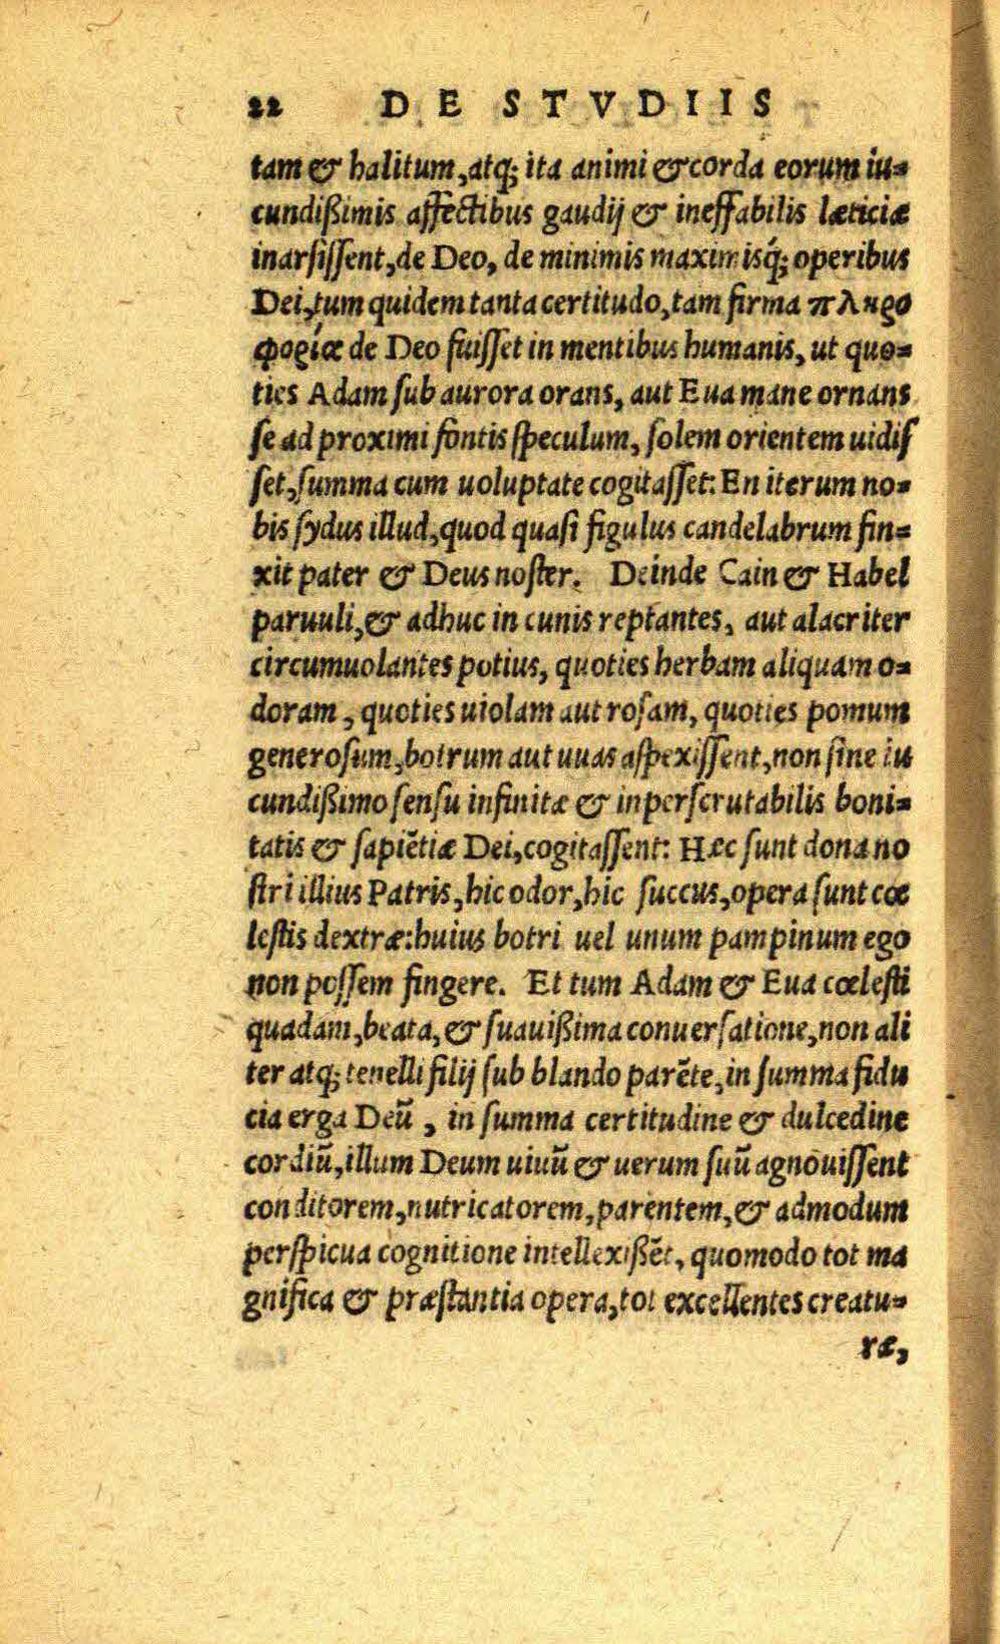 22 DE STVDIIS
tam & halitum, atq; ita animi & corda eorum iu-
cundißimis affectibus gaudij & ineffabilis læticiæ
inarsissent, de Deo, de minimis maximisq́; operibus
Dei, tum quidem tanta certitudo, tam firma πληρο
φορία de Deo fuisset in mentibus humanis, ut quo-
ties Adam sub aurora orans, aut Eua mane ornans
se ad proximi fontis speculum, solem orientem uidis
set, summa cum uoluptate cogitasset: En iterum no-
bis sydus illud, quod quasi figulus candelabrum fin-
xit pater & Deus noster. Deinde Cain & Habel
paruuli, & adhuc in cunis reptantes, aut alacriter
circumuolantes potius, quoties herbam aliquam o-
doram, quoties uiolam aut rosam, quoties pomum
generosum, botrum aut uuas aspexissent, non sine iu
cundißimo sensu infinitæ & inperscrutabilis boni-
tatis & sapiẽtiæ Dei, cogitassent: Hæc sunt dona no
stri illius Patris, hic odor, hic succus, opera sunt cœ
lestis dextræ: huius botri uel unum pampinum ego
non possem fingere. Et tum Adam & Eua cœlesti
quadam, beata, & suauißima conuersatione, non ali
ter atq; tenelli filij sub blando parẽte, in summa fidu
cia erga Deũ, in summa certitudine & dulcedine
cordiũ, illum Deum uiuũ & uerum suũ agnouissent
conditorem, nutricatorem, parentem, & admodum
perspicua cognitione intellexißẽt, quomodo tot ma
gnifica & præstantia opera, tot excellentes creatu-
ræ,